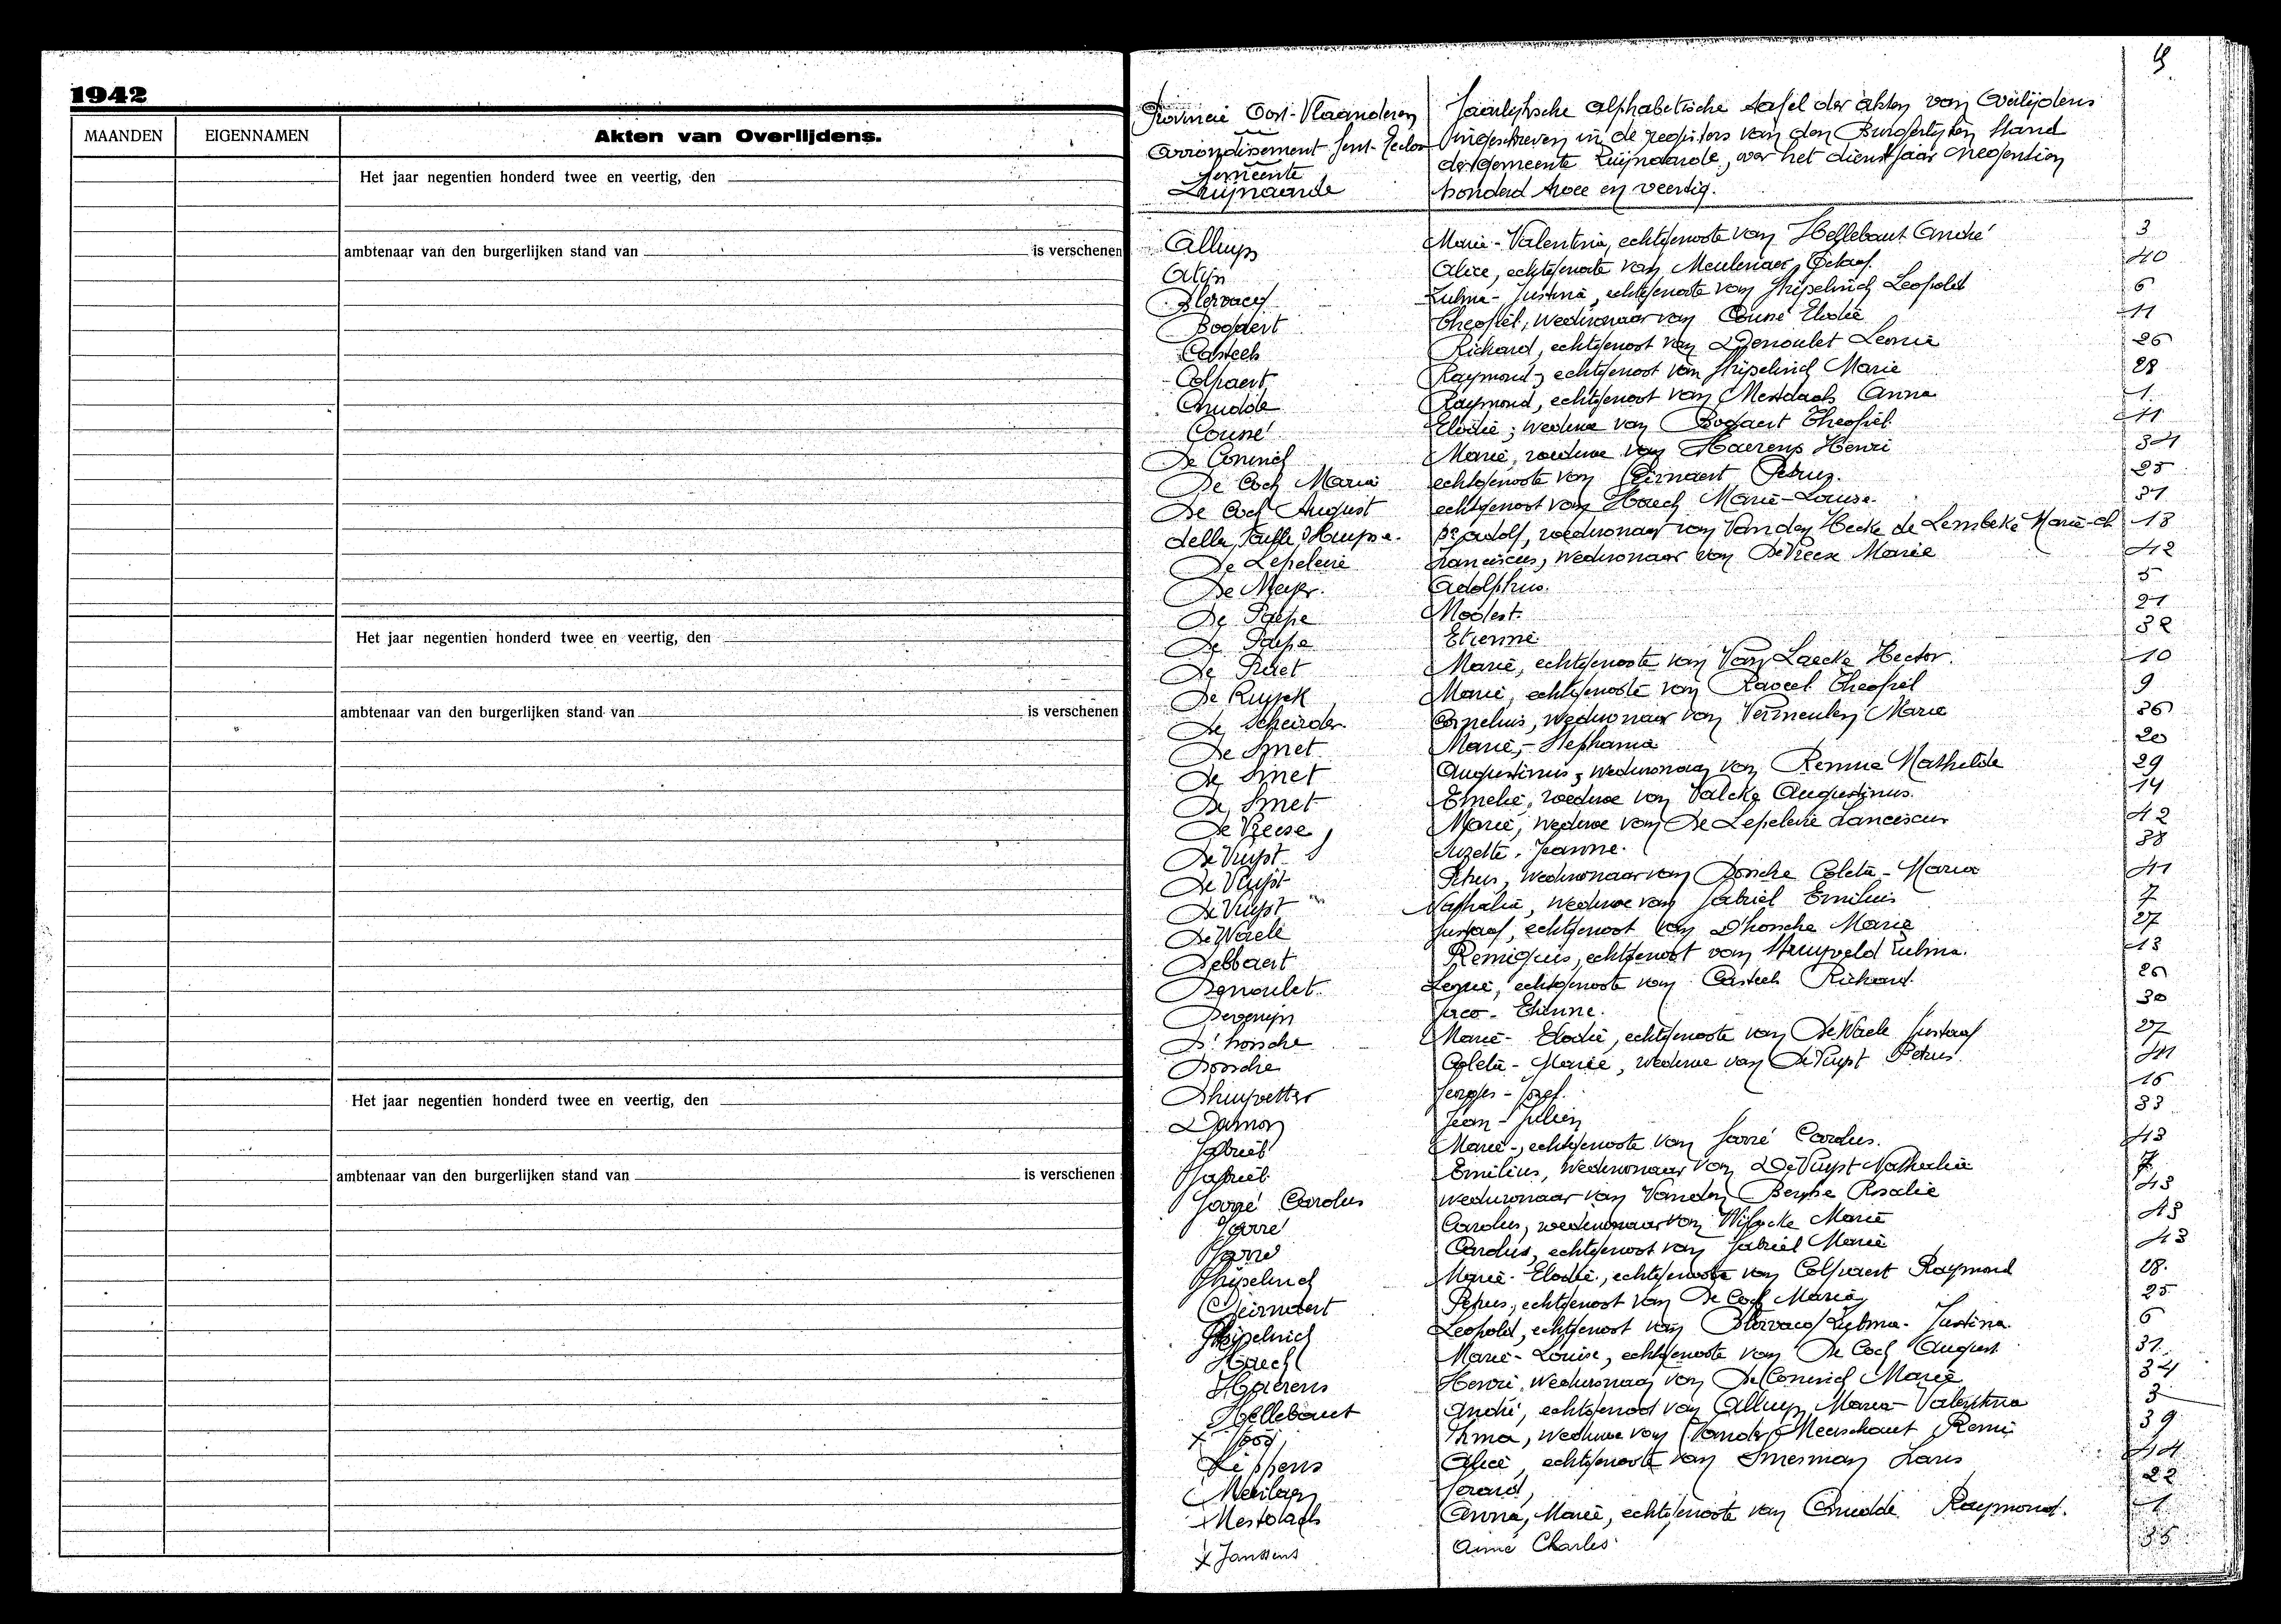 1942
MAANDEN EIGENNAMEN Akten van Overlijdens.
Het jaar negentien honderd twee en veertig, den
ambtenaar van den burgerlijken stand van is verschenen
Het jaar negentien honderd twee en veertig, den
ambtenaar van den burgerlijken stand van is verschenen
Het jaar negentien honderd twee en veertig, den
ambtenaar van den burgerlijken stand van is verschenen
Provincie Oost-Vlaanderen
Arrondissement Gent-Eecloo
Gemeente
Zwijnaarde
Jaarlijksche alphabetische tafel der akten van Overlijdens
ingeschreven in de registers van den Burgerlijken Stand
der gemeente Zwijnaarde, over het dienstjaar negentien
honderd twee en veertig.
Marie-Valentina, echtgenoote van Hellebaut André 3
Alijn Alice, echtgenoote van Meulenaer 40
Zulma-Justina, echtgenoote van Leopold 6
Bogaert Theofiel, weduwnaar van Couné Elodie 11
Casteels Richard, echtgenoot van Denoulet Leonie 26
Colpaert Raymond, echtgenoot van Marie 28
Cnudde Raymond, echtgenoot van Mestdach Anna 1
Couné Elodie, weduwe van Bogaert Theofiel 11
De Coninck Marie, weduwe van Haerens Henri 34
De Cock Maria echtgenoote van Geirnaert Petrus. 25
De Cock August echtgenoot van Haeck Marie-Louise. 31
della Faille d'Huysse. Adolf, weduwnaar van Van den Hecke de Lembeke Marie 18
De Lepeleire Franciscus, weduwnaar van De Vreese Marie 42
De Meyer. Adolphus. 5
De Paepe Modest. 21
De Paepe Etienne 32
De Praet Marie, echtgenoote van Van Laecke Hector. 10
De Ruyck Marie, echtgenoote van Theofiel 9
De Scheirder Cornelius, weduwnaar van Vermeulen Marie 36
De Smet Marie-Stephania 20
De Smet Augustinus, weduwnaar van Mathilde 29
De Smet Emelie, weduwe van Valcke Augustinus. 14
De Vreese Marie, weduwe van De Lepeleire Franciscus 42
De Vuyst Suzette, Jeanne. 38
De Vuyst Petrus, weduwnaar van Coleta-Maria 41
De Vuyst Nathalia, weduwe van Gabriël Emilius 7
De Waele Gustaaf, echtgenoot van D'hossche Marie 27
Debbaert Remigius, echtgenoot van Struyveld Zulma. 13
Denoulet Leonie, echtgenoote van Casteels Richard. 26
Etienne. 30
Marie-Elodie, echtgenoote van De Waele Gustaaf 27
Coleta-Marie, weduwe van De Vuyst Petrus. 41
Dhuyvetter Georges-Jozef. 16
Damon Jean-Julien 33
Gabriël Marie, echtgenoote van Gorré Carolus. 43
Gabriël Emilius, weduwnaar van De Vuyst Nathalia 7
Gorré Carolus weduwnaar van Vanden Berghe Rosalie 43
Gorré Carolus, weduwnaar van Marie 43
Gorré Carolus, echtgenoot van Gabriël Marie 43
Marie-Elodie, echtgenoote van Colpaert Raymond 28.
Geirnaert Petrus, echtgenoot van De Cock Maria 25
Leopold, echtgenoot van Zulma-Justina. 6
Haeck Marie-Louise, echtgenoote van De Cock August 31.
Haerens Henri, weduwnaar van De Coninck Marie 34
Hellebaut André, echtgenoot van Maria-Valentina 3
Irma, weduwe van Vander Meerschaut Remi 39
Lippens Alice, echtgenoote van Smesman 44
Gerard, 22
Mestdach Anna, Marie, echtgenoote van Cnudde Raymond. 1
x Janssens Aimé Charles 35